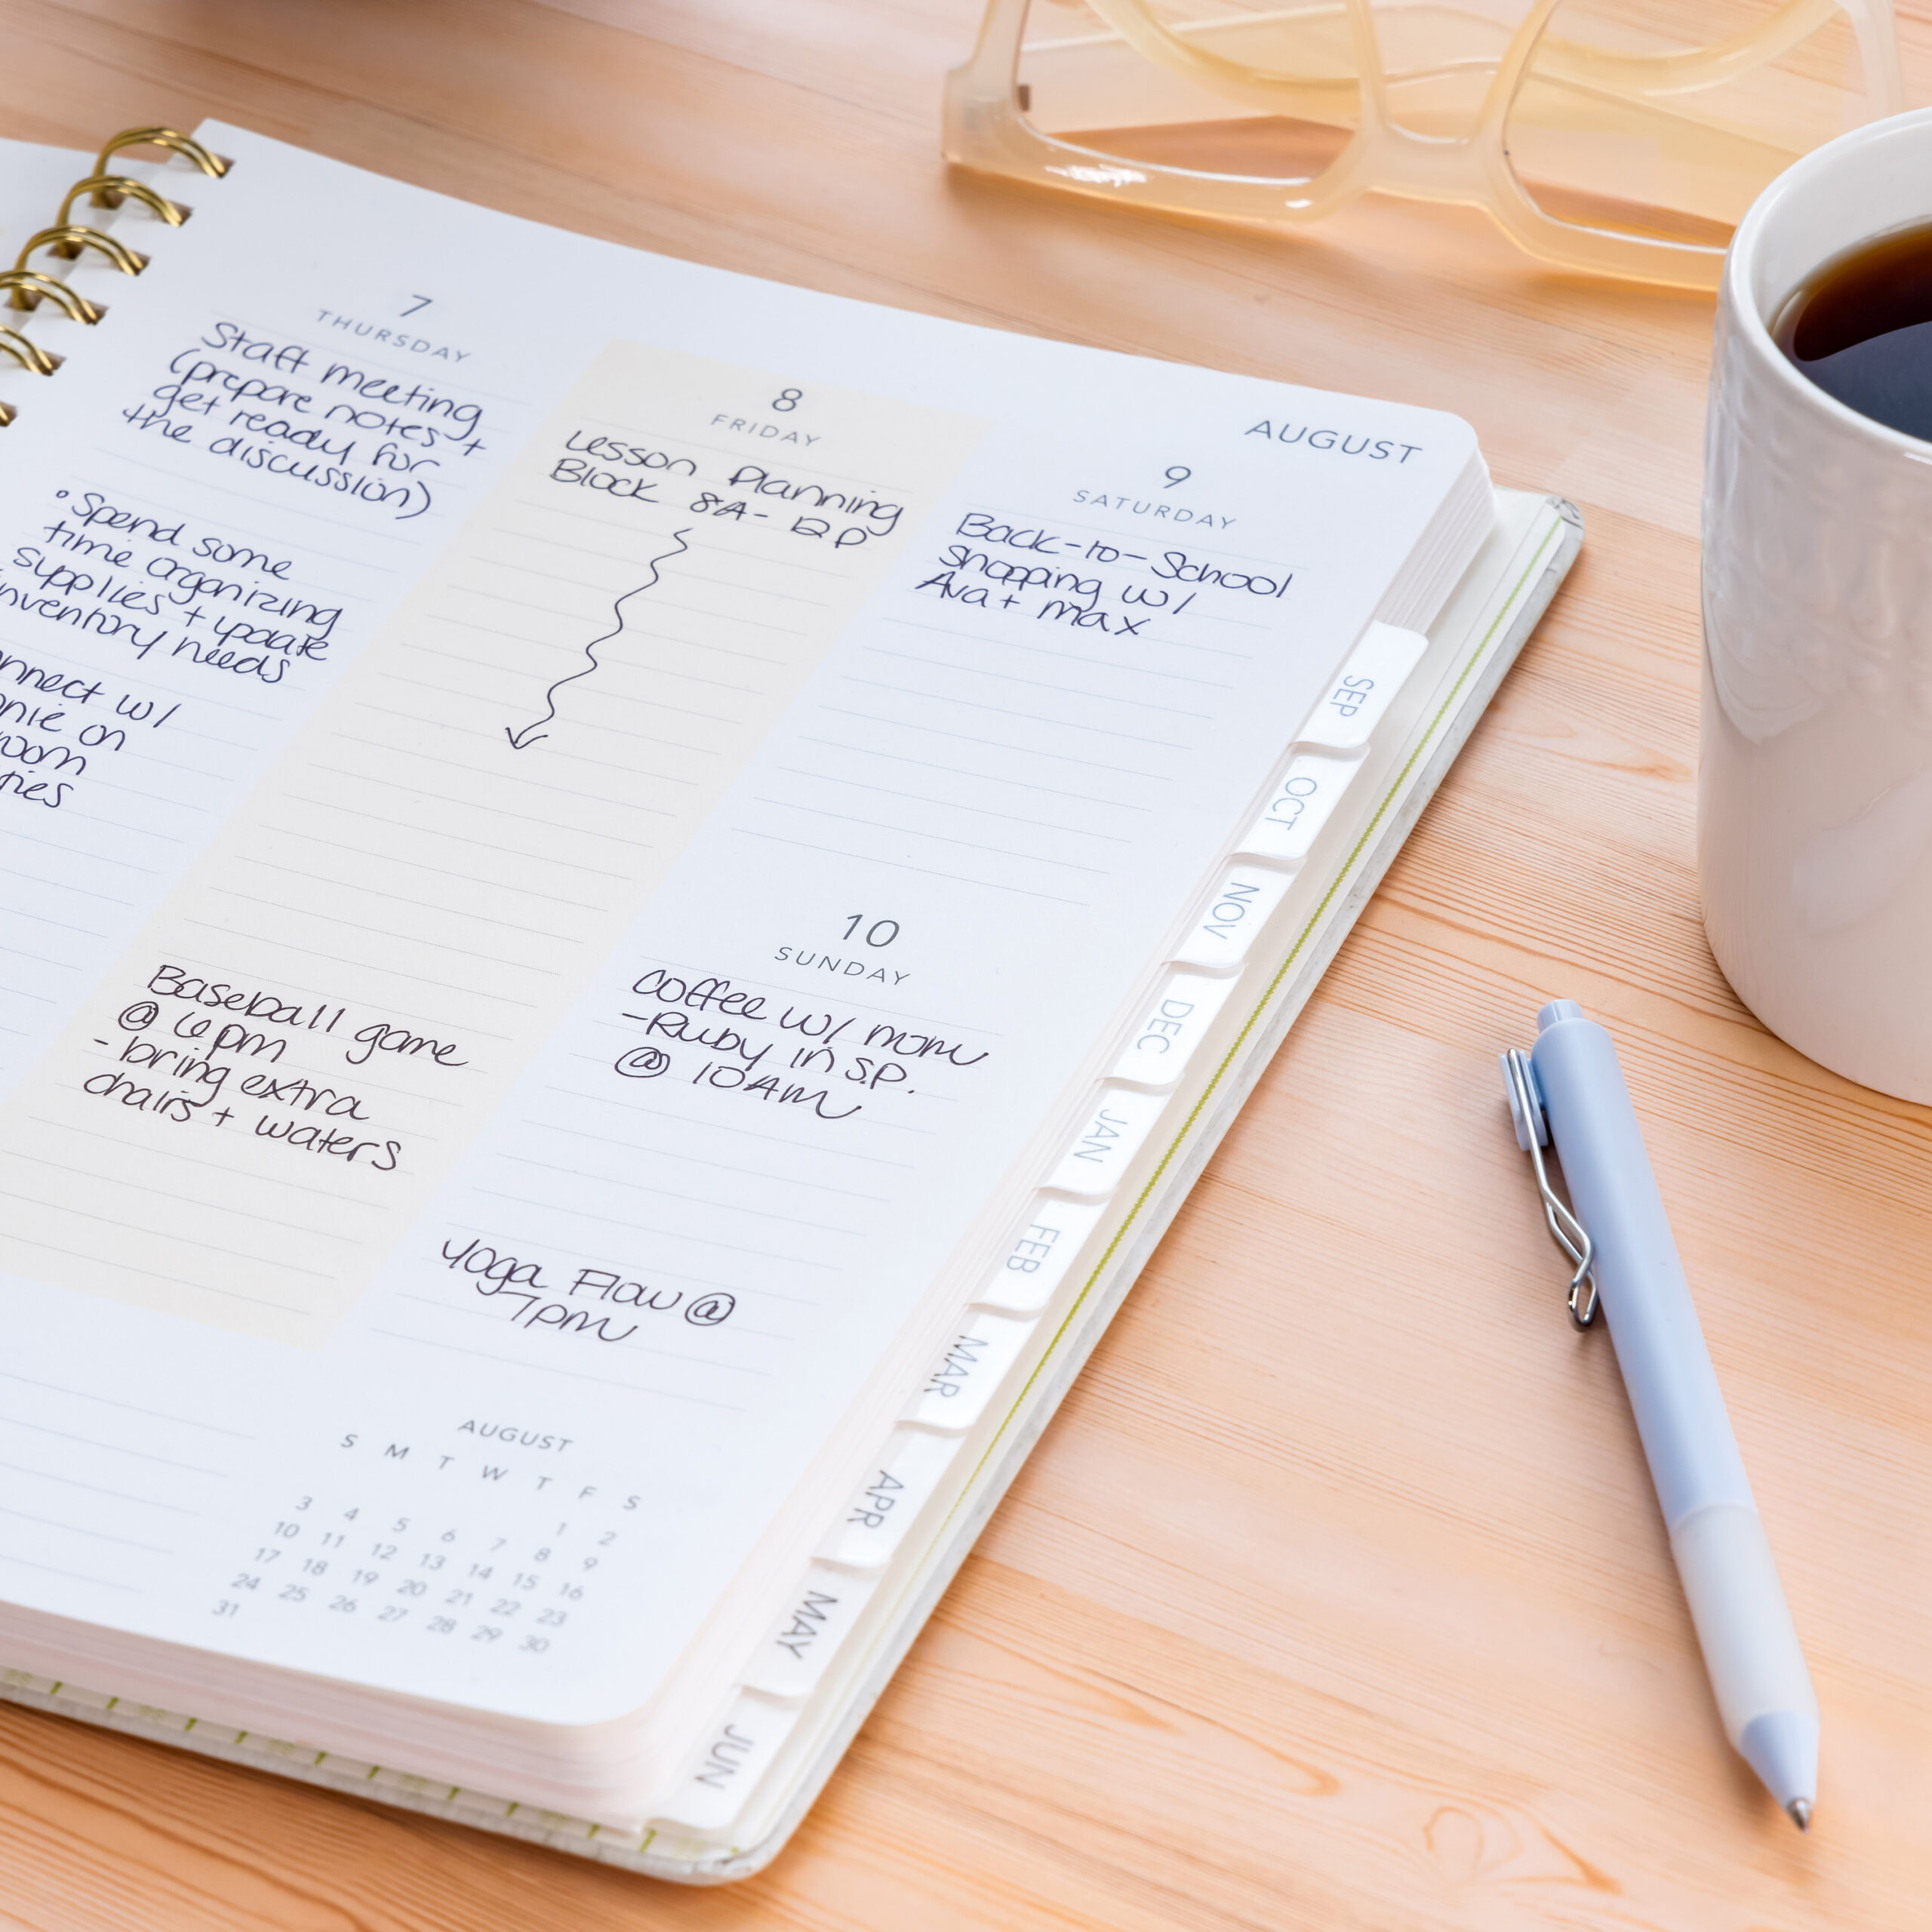 7
THURSDAY
Staff meeting
(prepare notes +
get ready for
the discussion)
• Spend some
time organizing
supplies + update
inventory needs
w/
on
8
FRIDAY
Lesson Planning
Block 8A-12P
Baseball game
@ 6pm
- bring extra
chairs + waters
AUGUST
9
SATURDAY
Back-to-School
Shopping w/
Ava + max
10
SUNDAY
Coffee w/ mom
-Ruby in S.P.
@ 10AM
Yoga Flow @
7pm
AUGUST
S M T W T F S
1 2
3 4 5 6 7 8 9
10 11 12 13 14 15 16
17 18 19 20 21 22 23
24 25 26 27 28 29 30
31
SEP
OCT
NOV
DEC
JAN
FEB
MAR
APR
MAY
JUN